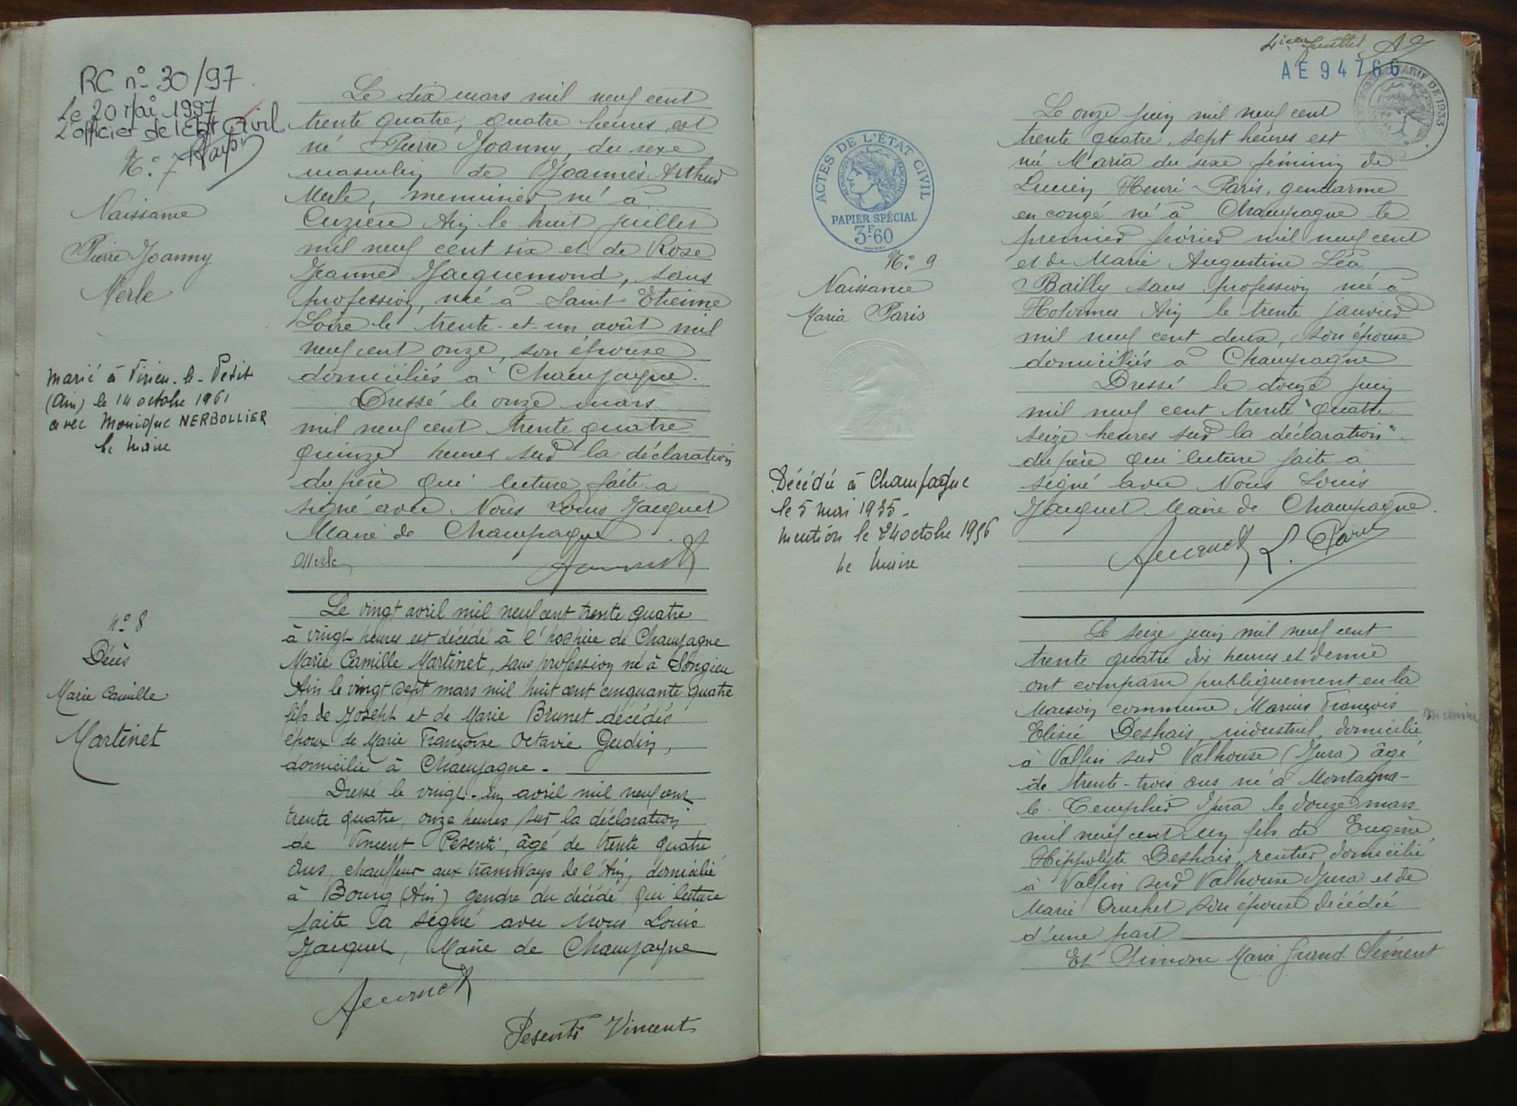 RC n° 30/97
Le 20 Mai 1997
L'officier de l'Etat Civil
N° 7
Naissance
Pierre Joanny
Merle
Marié à Virieu-le-Petit
(Ain) le 14 octobre 1961
avec Monique NERBOLLIER
Le Maire
Le dix mars mil neuf cent
trente quatre, quatre heures est
né Pierre Joanny, du sexe
masculin de Joannès Arthur
Merle, menuisier né à
Cuzieu Ain le huit juillet
mil neuf cent six et de Rose
Jeanne Jacquemond, sans
profession, née à Saint Etienne
Loire le trente-et-un août mil
neuf cent onze, son épouse
domiciliés à Champagne.
Dressé le onze mars
mil neuf cent trente quatre
quinze heures sur la déclaration
du père qui lecture faite a
signé avec Nous Louis Jacquet
Maire de Champagne
Merle
N° 8
Décès
Marie Camille
Martinet
Le vingt avril mil neuf cent trente quatre
à vingt heures est décédé à l'hospice de Champagne
Marie Camille Martinet, sans profession né à Songieu
Ain le vingt sept mars mil huit cent cinquante quatre
fils de Joseph et de Marie Brunet décédés
époux de Marie Françoise Octavie Gudin,
domicilié à Champagne.
Dressé le vingt-un avril mil neuf cent
trente quatre, onze heures sur la déclaration
de Vincent Pesenti, âgé de trente quatre
ans, chauffeur aux tramways de l'Ain, domicilié
à Bourg (Ain) gendre du décédé qui lecture
faite a signé avec Nous Louis
Jacquet, Maire de Champagne
Pesenti Vincent
4ième feuillet
AE 94766
ACTES DE L'ÉTAT CIVIL
PAPIER SPÉCIAL
3F60
N° 9
Naissance
Maria Paris
Décédée à Champagne
le 5 mai 1935.
Mention le 24 octobre 1956
Le Maire
Le onze juin mil neuf cent
trente quatre, sept heures est
née Maria du sexe féminin de
Lucien Henri Paris, gendarme
en congé né à Champagne le
premier février mil neuf cent
et de Marie Augustine Léa
Bailly sans profession née à
Hotonnes Ain le trente janvier
mil neuf cent deux, son épouse
domiciliés à Champagne
Dressé le douze juin
mil neuf cent trente quatre
seize heures sur la déclaration
du père qui lecture faite a
signé avec Nous Louis
Jacquet Maire de Champagne.
L. Paris
Le seize juin mil neuf cent
trente quatre dix heures et demie
ont comparu publiquement en la
Maison commune Marius François
Elisée Deshais, industriel, domicilié
à Valfin sur Valhouse (Jura) âgé
de trente-trois ans né à Montagna-
le-Templier Jura le douze mars
mil neuf cent un fils de Eugène
Hippolyte Deshais rentier domicilié
à Valfin sur Valhouse Jura et de
Marie son épouse décédée
d'une part
Et Simone Marie Grand-Clément